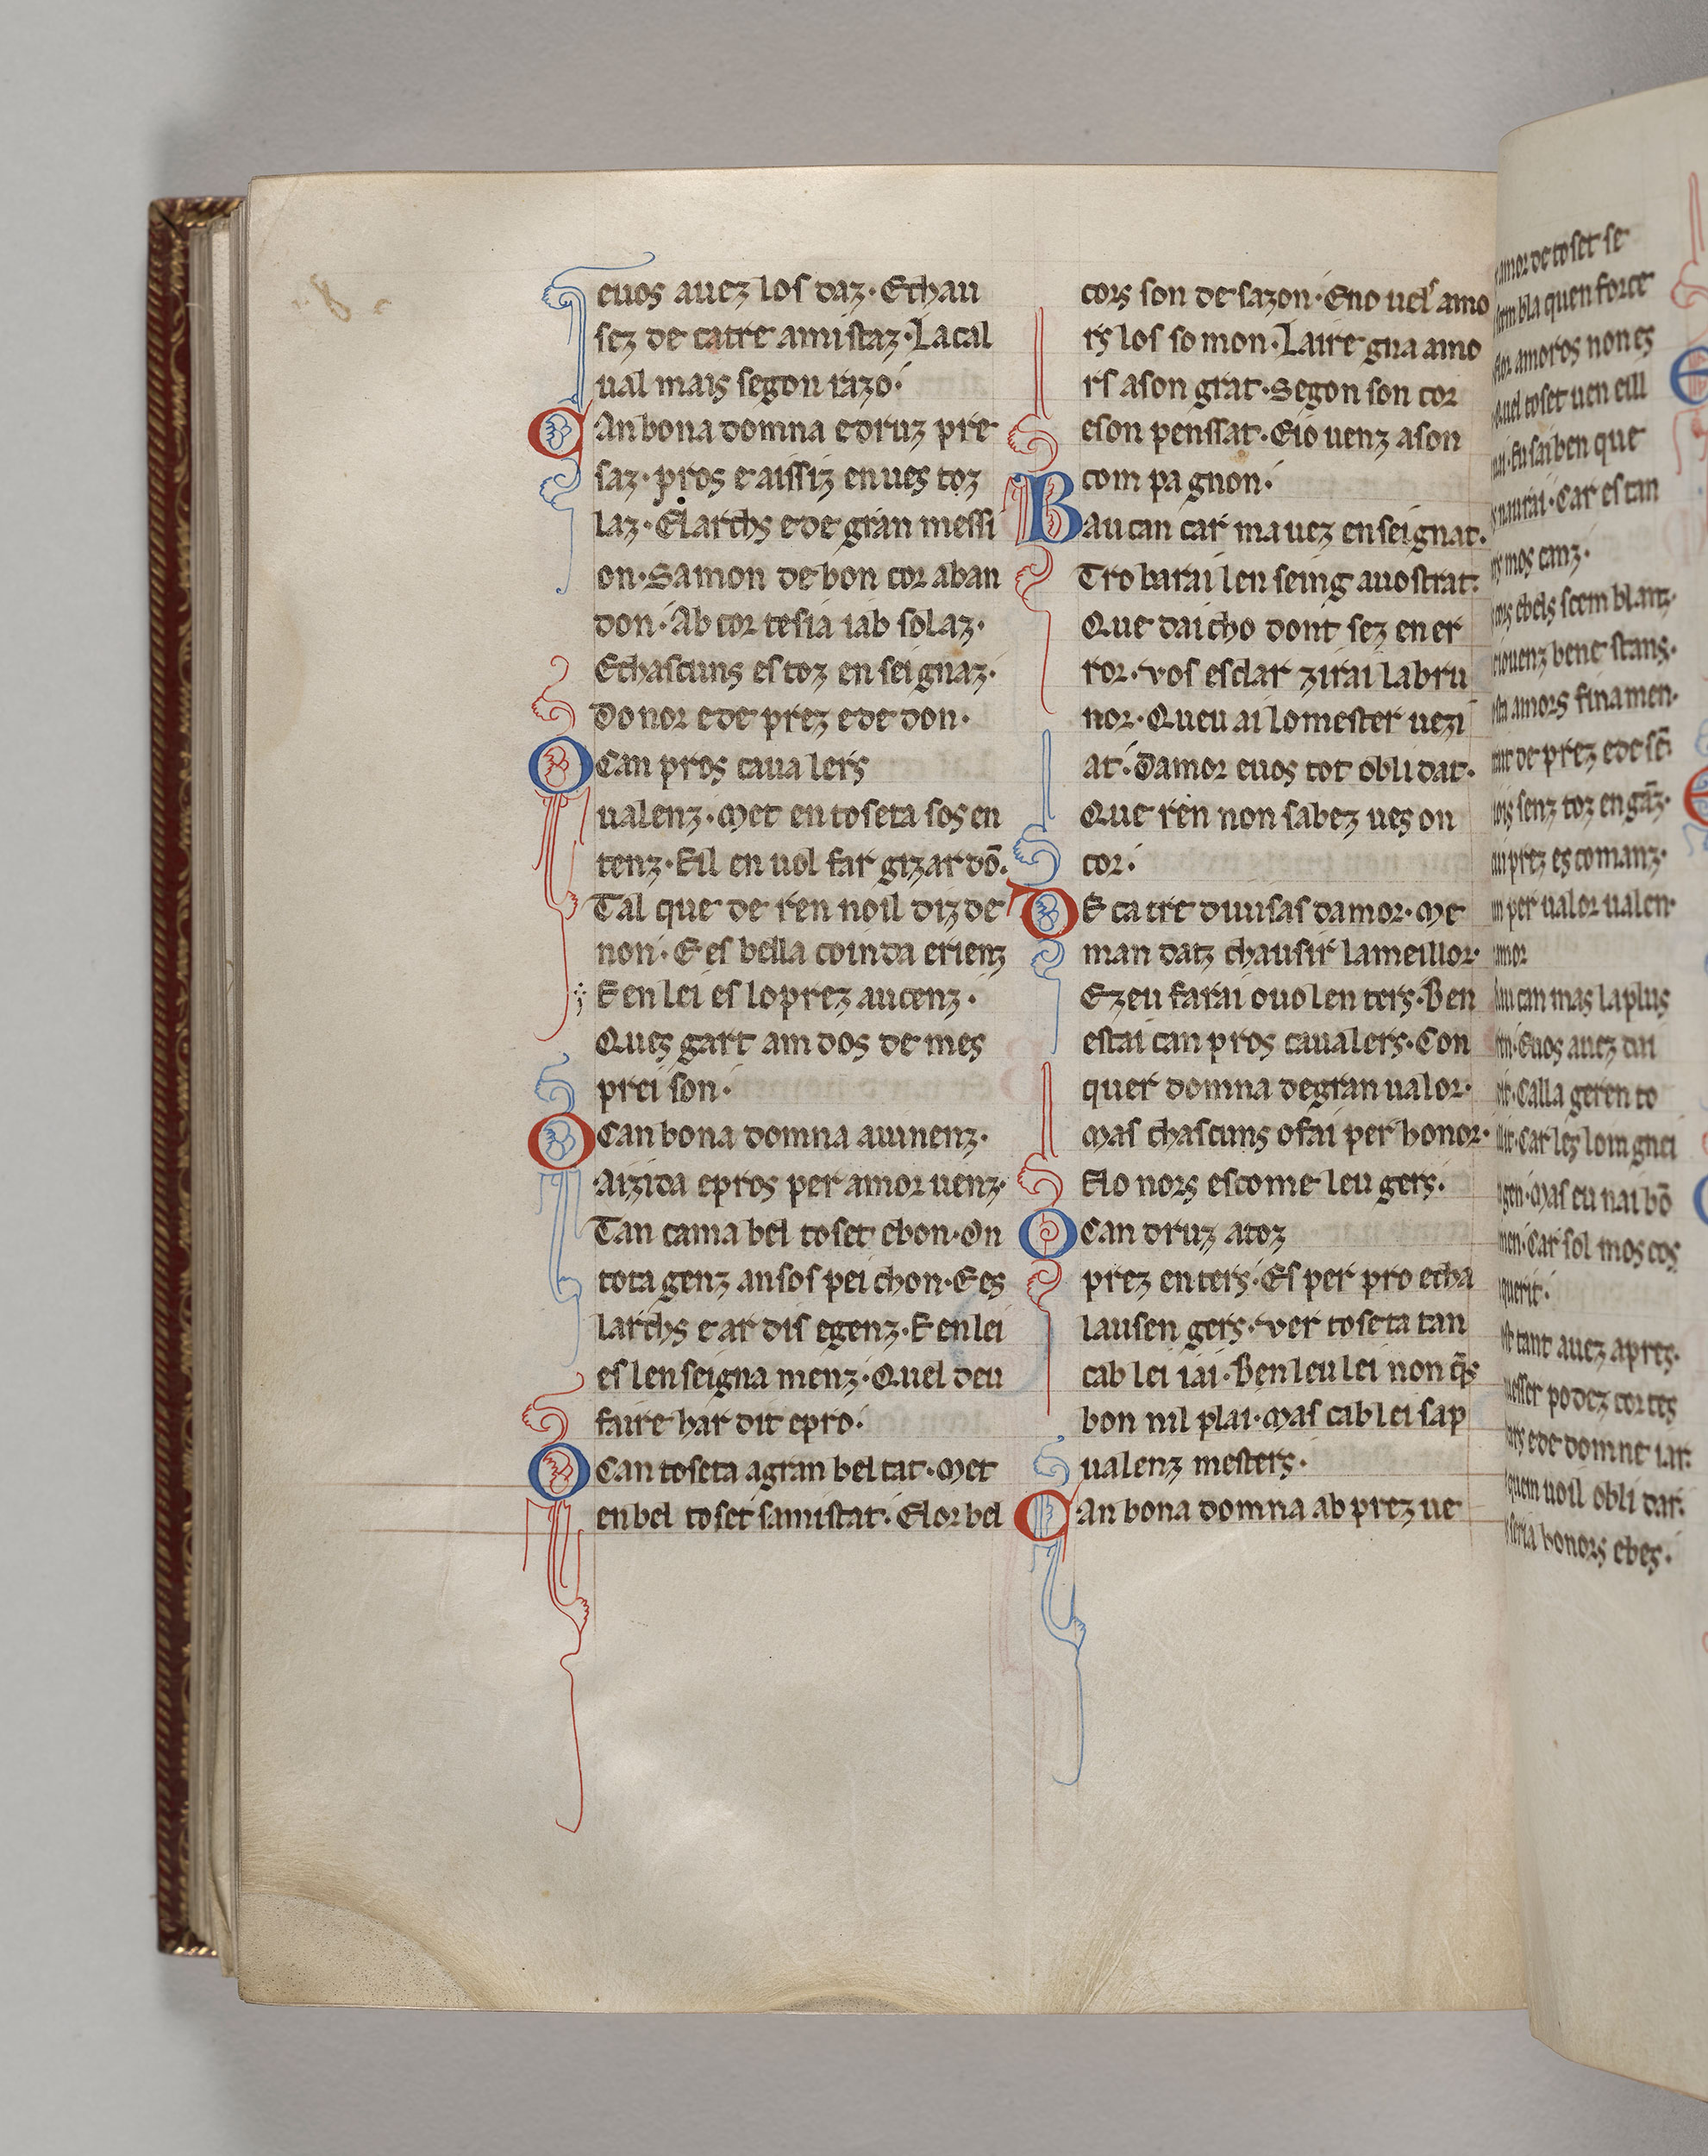 euos auez los daz· Echau
sez de catre amistaz· Lacal
ual mais segon razo·
CAn bona domna e druz pre
saz· pros e aissiz en ues toz
laz· Elarchs e de gran messi
on· Samon de bon cor aban
don· Ab cor tesia iab solaz·
Echascuns es toz en seignaz·
Do nor e de prez e de don·
O Can pros caua lers
ualenz· Met en toseta sos en
tenz· Eil en uol far gizar dō·
Tal que de ren noil diz de
non· E es bella coinda e rienz
E en lei es lo prez aucenz·
Ques gart am dos de mes
prei son·
O Can bona domna auinenz·
Aizida e pros per amor uenz·
Tan cama bel toset ebon· On
tota genz an sos pei chon· E es
larchs e ar dis e genz· E en lei
es len seigna menz· Quel deu
faire har dit e pro·
O Can toseta a gran bel tat· Met
en bel toset samistat· Elor bel
cors son de sazon· Eno uels amo
rs los so mon· Laire gna amo
rs a son grat· Segon son cor
e son penssat· Eio uenz a son
com pa gnon·
Bau can car ma uez en seignat·
Tro barai len seing a uostrat·
Que dai cho dont sez en er
ror· vos es clar zirai la bru
nor· Queu ai lo mester uezi
at· Damor e uos tot obli dat·
Que ren non sabez ues on
cor·
DE ca tre diuisas damor· Me
man datz chausir la meillor·
Ez eu farai o uo len ters· Ben
estai can pros caualers· Con
quer domna de gran ualor·
Mas chascuns o fai per honor·
Elo nors es come leu gers·
O Can druz a toz
prez en ters· Es per pro e cha
lausen gers· ver toseta tan
cab lei iai· Ben leu lei non q̄s
bon nil plai· Mas cab lei sap
ualenz mesters·
CAn bona domna ab prez ue
amor de toset se
sem bla quen force
amoros non es
quel toset uen eill
Eu sai ben que
Car es tan
mos canz·
e bels sem blanz·
iouenz ben e stans·
amors fina men·
de prez e de sē
senz toz en gāz·
prez es comanz·
per ualor ualen·
amor
can mas la plus
Euos auez dui
Calla geren to
Car lez loin gnei
Mas eu nai bō
Car sol mos cos
querir·
tant auez apres·
esser podez cor tes
e de domne iar·
quem uoil obli dar·
seria honors e bes·